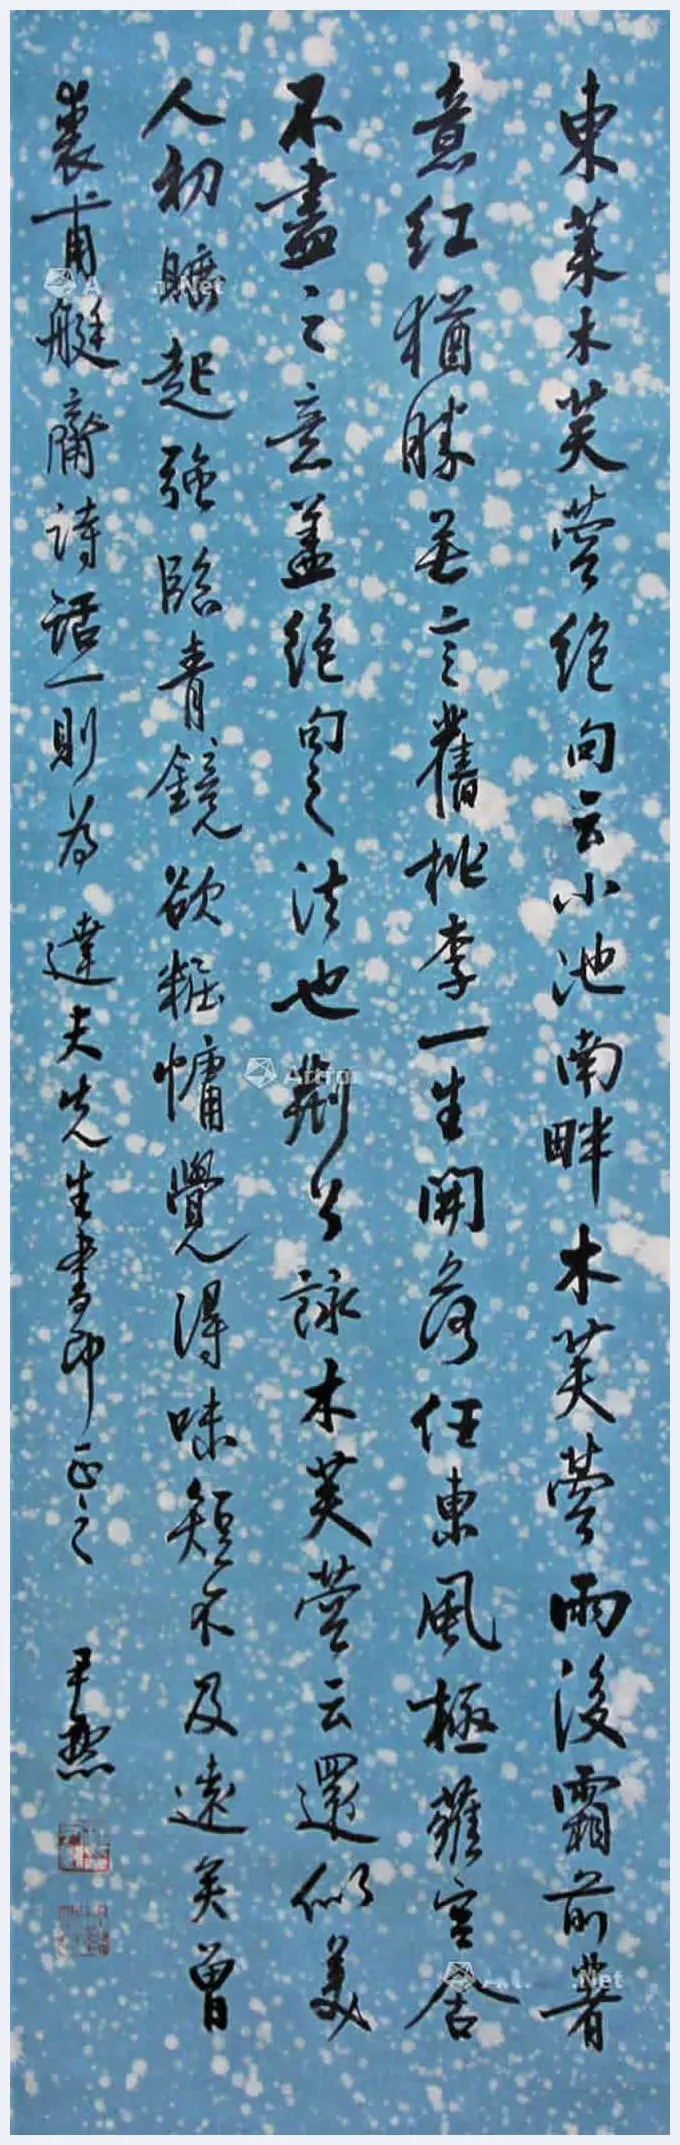 東萊木芙蓉絕句云小池南畔木芙蓉雨後霜前著
意紅猶勝無言舊桃李一生開落任東風極雍容含
不盡之意蓋絕句之法也荊公詠木芙蓉云還似美
人初睡起強臨青鏡欲糚慵覺得味短不及遠矣曾
裘甫艇齋詩話一則為達夫先生書即正之 尹默